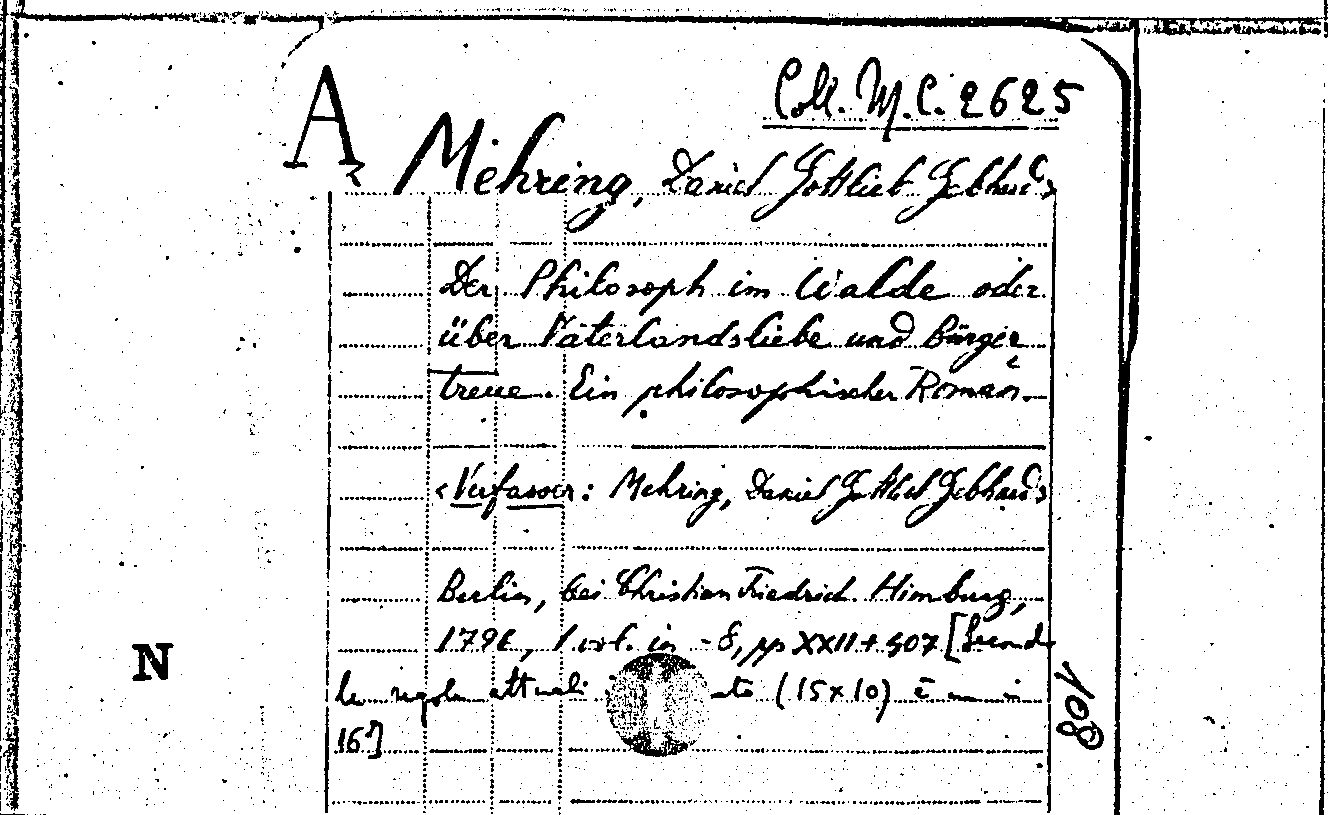 Coll. M.C. 2625
A
Mehring, Daniel Gottlieb Gebhard
Der Philosoph im Walde oder
über Vaterlandsliebe und Bürger
treue. Ein philosophischer Roman.
<Verfasser: Mehring, Daniel Gottlieb Gebhard>
Berlin, bei Christian Friedrich Himburg,
1796, 1 vol. in -8, pp XXII+507 [Secondo
le regole attuali (15x10) è un in
16°]
N
108